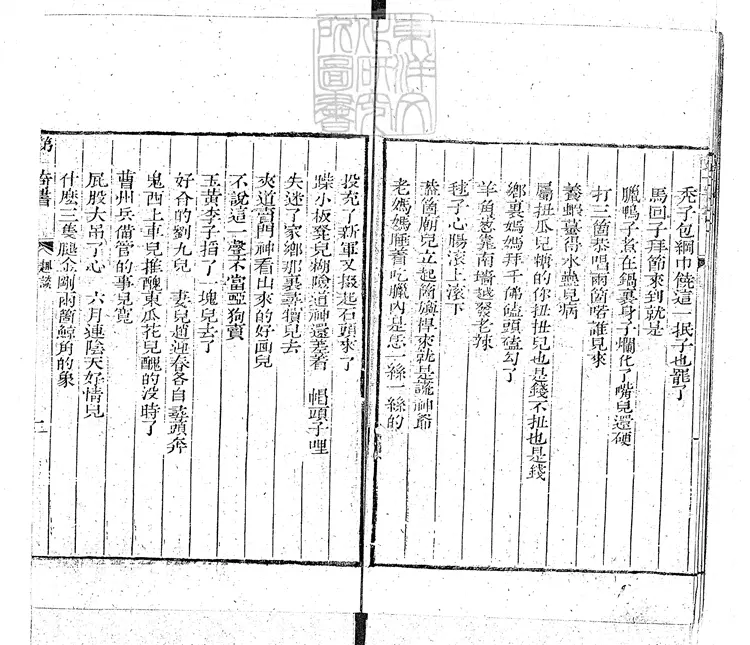 東洋文
化研究
所圖書
禿子包網巾饒這一抿子也罷了
馬回子拜節來到就是
臘鴨子煮在鍋裏身子爛化了嘴兒還硬
打三箇恭唱兩箇喏誰見來
養蝦蟇得水蠱兒病
屬扭瓜兒糖的你扭扭兒也是錢不扭也是錢
鄉裏媽媽拜千佛磕頭磕勾了
羊角葱靠南墻越發老辣
毬子心腸滾上滾下
蓋箇廟兒立起箇旗桿來就是謊神爺
老媽媽睡著吃臘肉是恁一絲一絲的
投充了新軍又掇起石頭來了
躧小板凳兒糊險道神還差着 帽頭子哩
失迷了家鄉那裏尋犢兒去
夾道賣門神看出來的好画兒
不說這一聲不當啞狗賣
玉黃李子掐了一塊兒去了
好合的劉九兒 妻兒趙迎春各自尋頭奔
鬼西上車兒推醜東瓜花兒醜的没時了
曹州兵備管的事兒寬
屁股大吊了心 六月連陰天好情兒
什麽三隻腿金剛兩箇鯨角的象
第一奇書 趣談 二